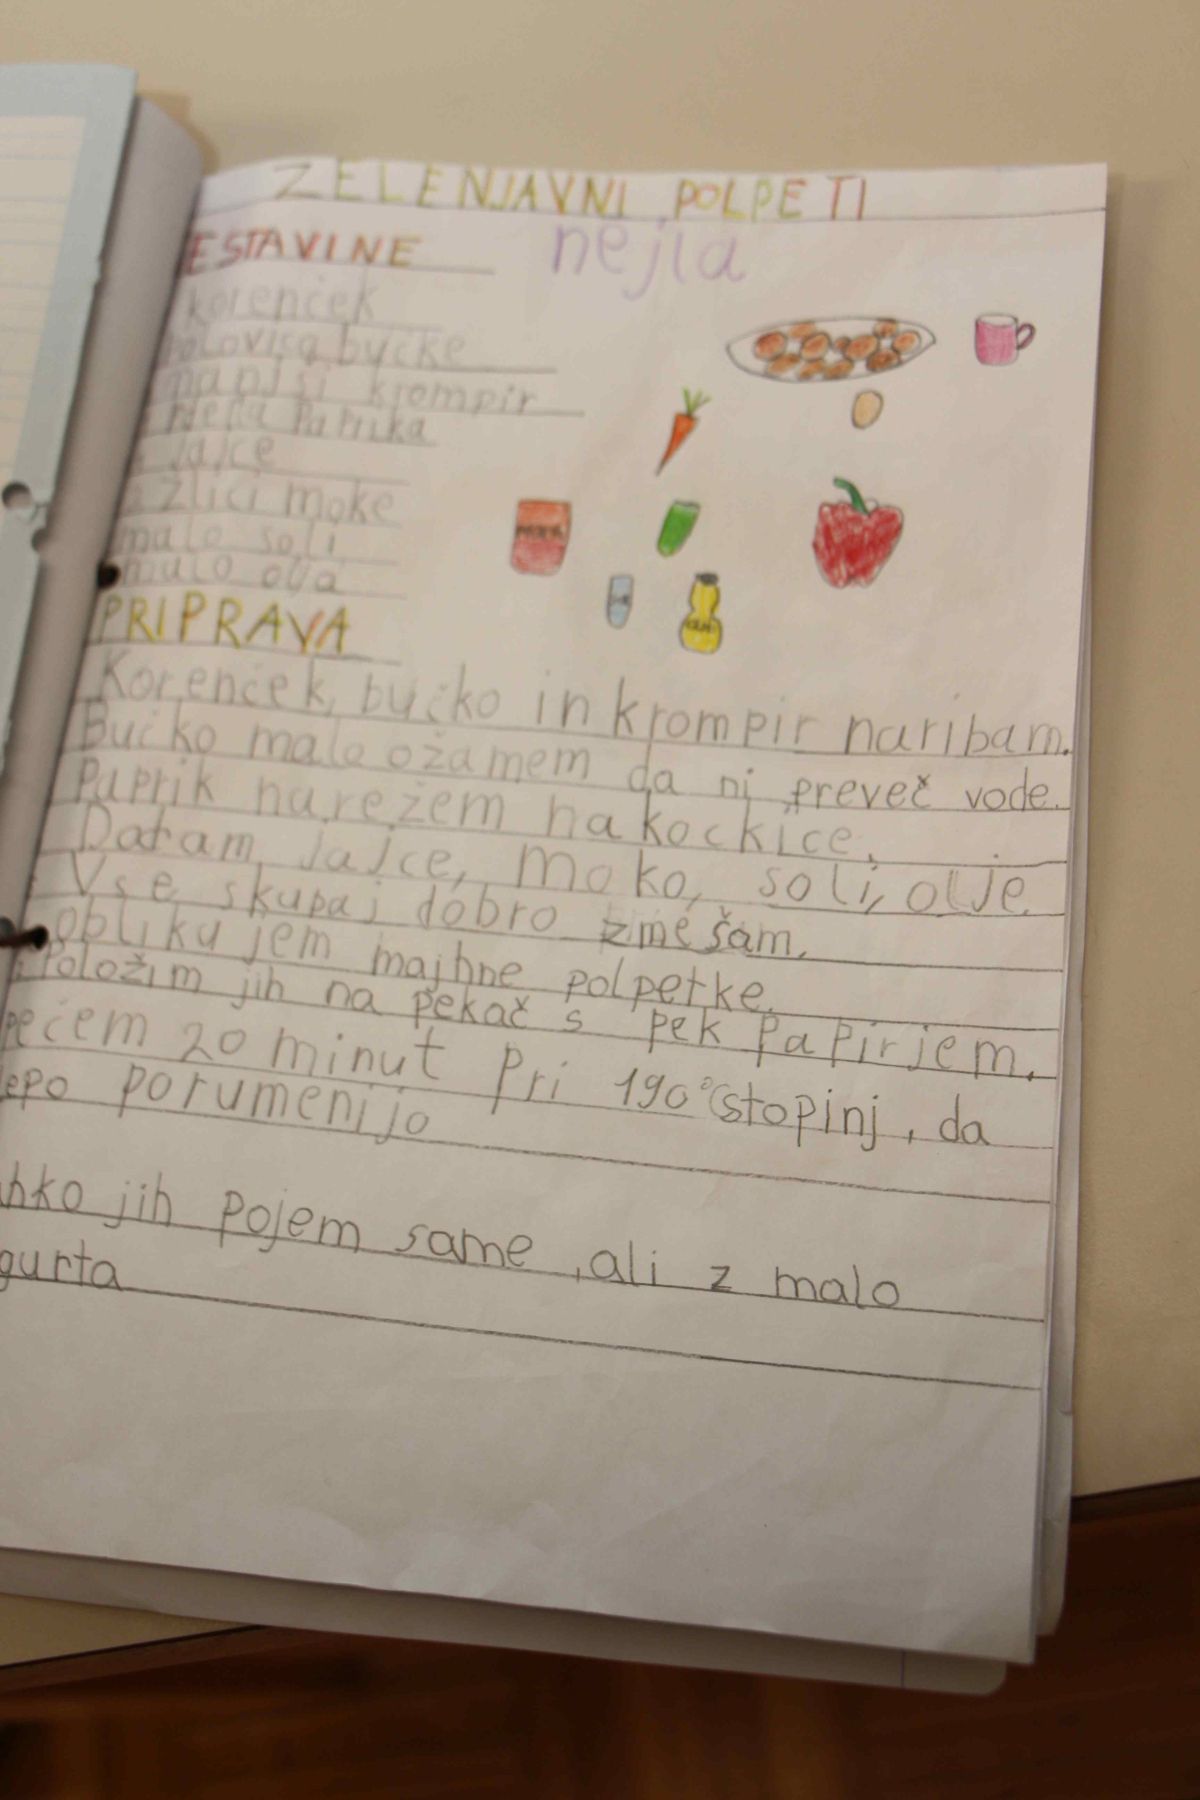 ZELENJAVNI POLPETI
ESTAVINE
nejla
korenček
polovica bučke
manjši krompir
rdeča Paprika
jajce
žlici moke
malo soli
malo olja
PRIPRAVA
Korenček, bučko in krompir naribam.
Bučko malo ožamem da ni preveč vode.
Paprik narežem na kockice.
Dodam jajce, moko, soli, olje.
Vse skupaj dobro zmešam.
oblikujem majhne polpetke.
Položim jih na pekač s pek Papirjem.
pečem 20 minut Pri 190°C stopinj, da
epo porumenijo
hko jih pojem same, ali z malo
gurta